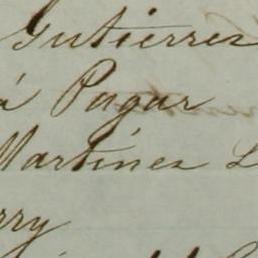 Gutierres
á Pagar
Martines L
rry